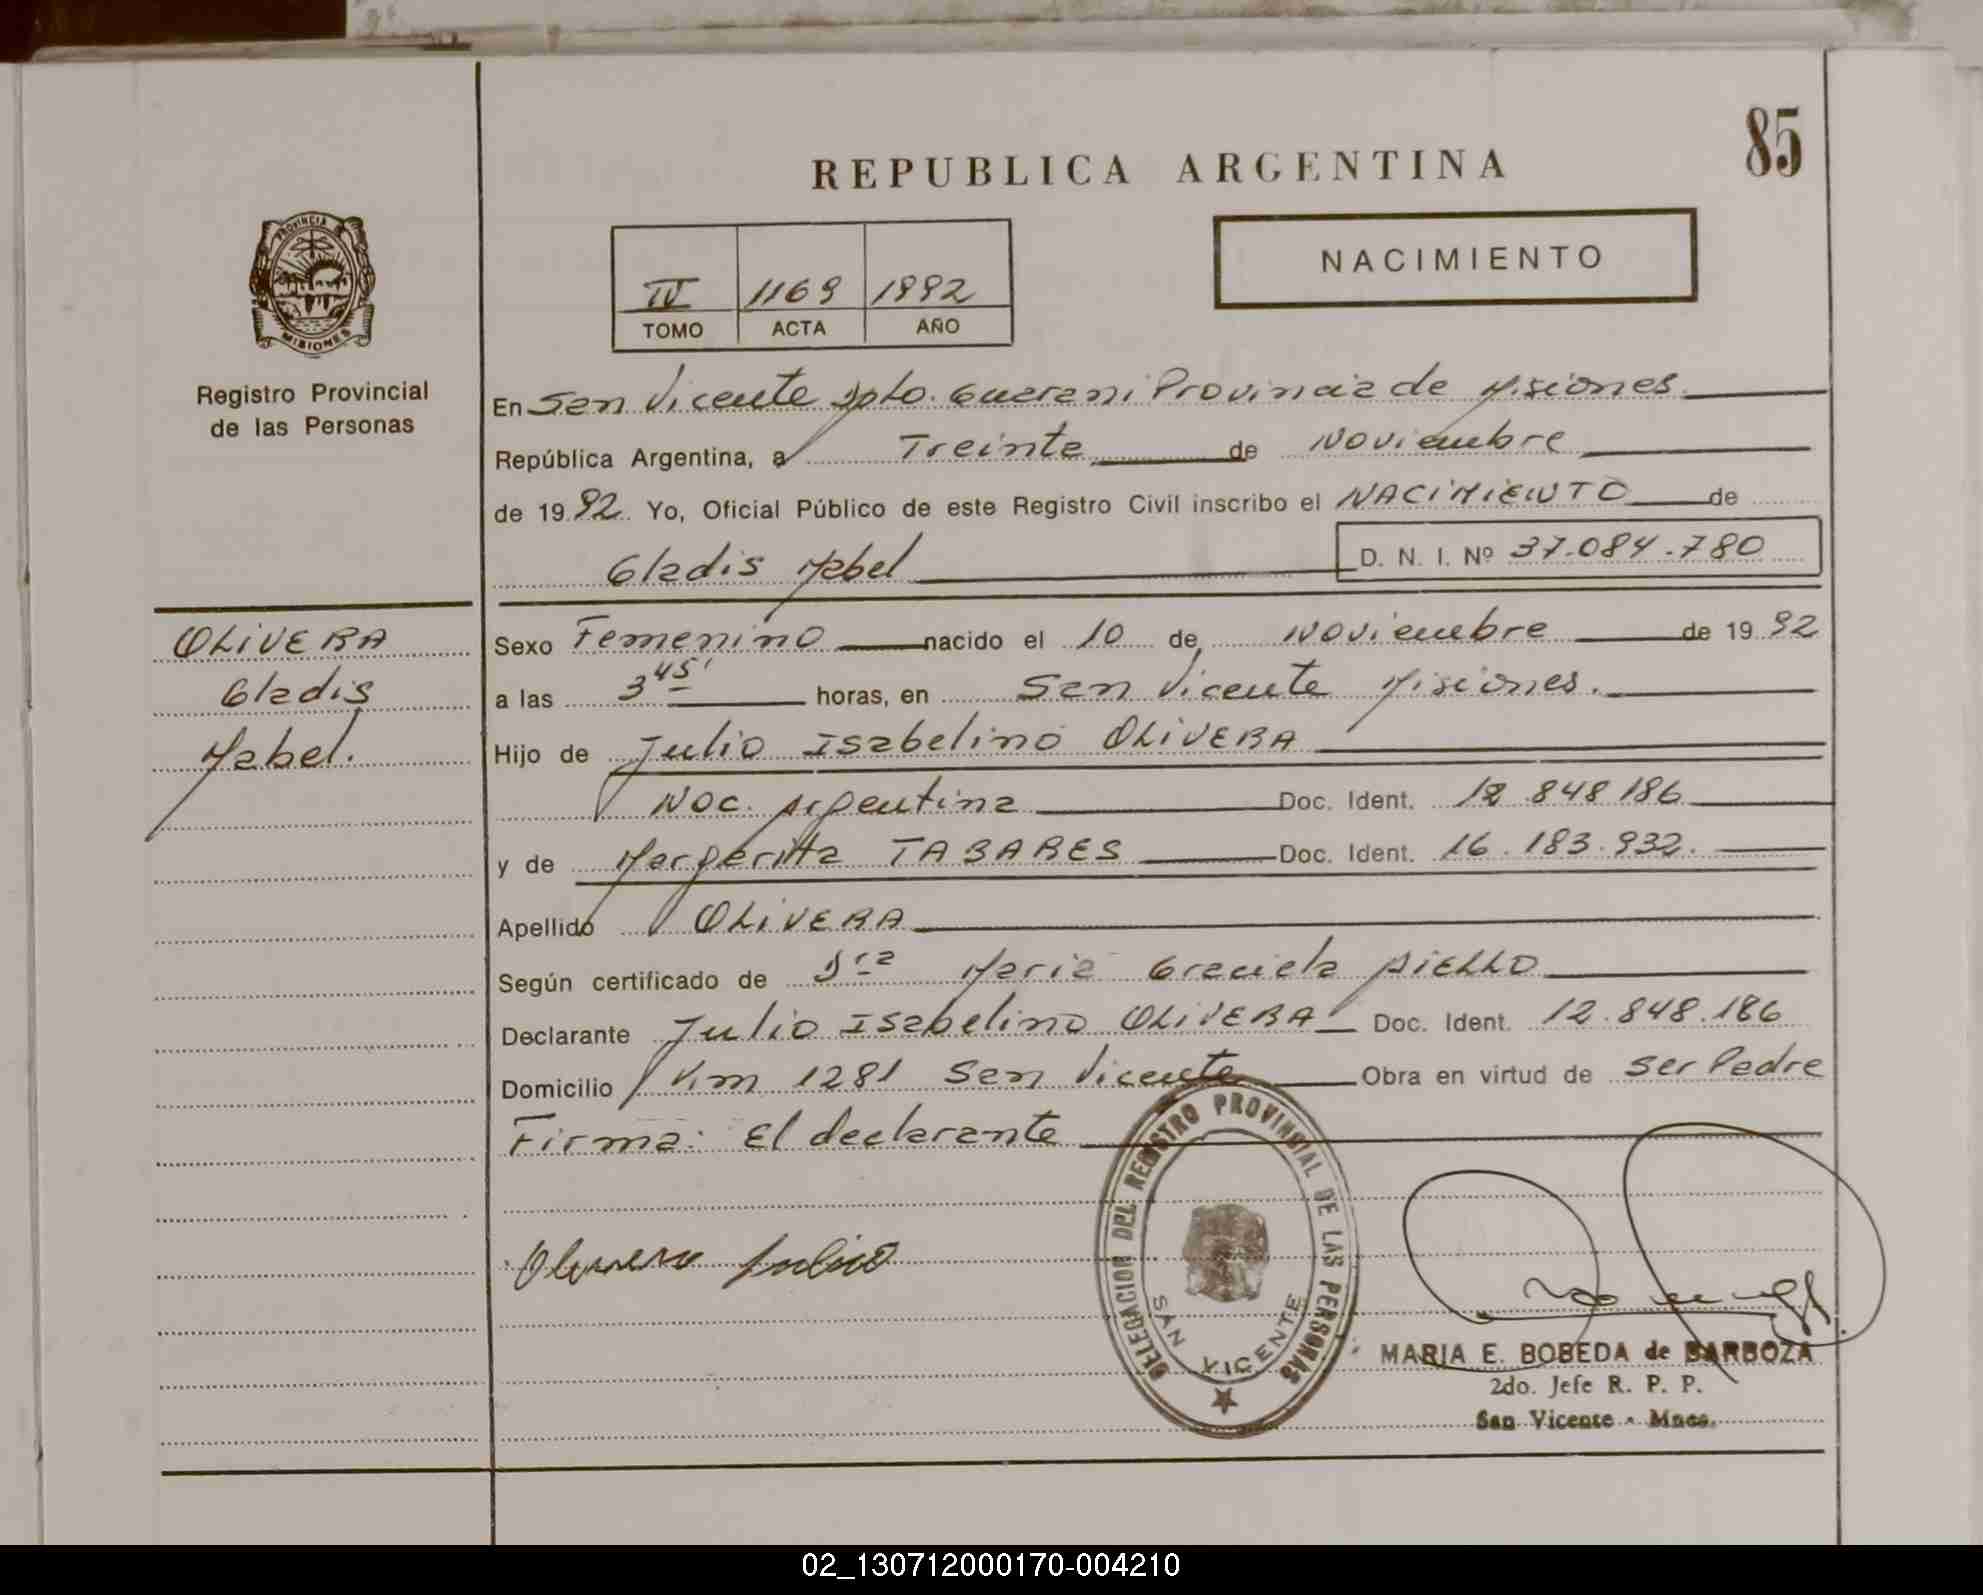 85
REPUBLICA ARGENTINA
NACIMIENTO
IV 1169 1992
TOMO ACTA AÑO
PROVINCIA
MISIONES
Registro Provincial
de las Personas
En San Vicente Dpto. Guarani Provincia de Misiones
República Argentina, a Treinta de Noviembre
de 19 92. Yo, Oficial Público de este Registro Civil inscribo el NACIMIENTO de
Gladis Mabel D. N. I. Nº 37.084.780
OLIVERA
Gladis
Mabel.
Sexo Femenino nacido el 10 de Noviembre de 19 92
a las 3 45' horas, en San Vicente Misiones.
Hijo de Julio Isabelino OLIVERA
Nac. Argentina Doc. Ident. 12.848.186
y de Margaritta TABARES Doc. Ident. 16.183.932.
Apellido OLIVERA
Según certificado de Dra Maria Graciela AIELLO
Declarante Julio Isabelino OLIVERA Doc. Ident. 12.848.186
Domicilio Km 1281 San Vicente Obra en virtud de ser Padre
Firma: El declarante
DELEGACION DEL REGISTRO PROVINCIAL DE LAS PERSONAS
SAN VICENTE
Julio
MARIA E. BOBEDA de BARBOZA
2do. Jefe R. P. P.
San Vicente - Mnes.
02_130712000170-004210